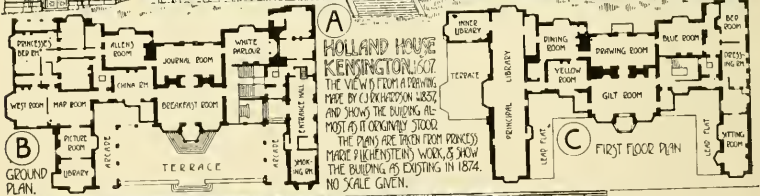 PRINCESSES
BED RM.
ALLEN'S
ROOM
JOURNAL ROOM
WHITE
PARLOUR
CHINA RM
WEST ROOM
MAP ROOM
BREAKFAST ROOM
ENTRANCE HALL
PICTURE
ROOM
LIBRARY
ARCADE
TERRACE
ARCADE
SMOK-
ING RM.
B
GROUND
PLAN.
A
HOLLAND HOUSE
KENSINGTON. 1607.
THE VIEW IS FROM A DRAWING
MADE BY C.J. RICHARDSON 1837,
AND SHOWS THE BUILDING AL-
MOST AS IT ORIGINALLY STOOD.
THE PLANS ARE TAKEN FROM PRINCESS
MARIE LICHENSTEIN'S WORK, & SHOW
THE BUILDING AS EXISTING IN 1874.
NO SCALE GIVEN.
INNER
LIBRARY
TERRACE
PRINCIPAL LIBRARY
DINING
ROOM
YELLOW
ROOM
DRAWING ROOM
BLUE ROOM
GILT ROOM
BED
ROOM
DRESS-
ING RM.
SITTING
ROOM
LEAD FLAT
LEAD FLAT
C
FIRST FLOOR PLAN